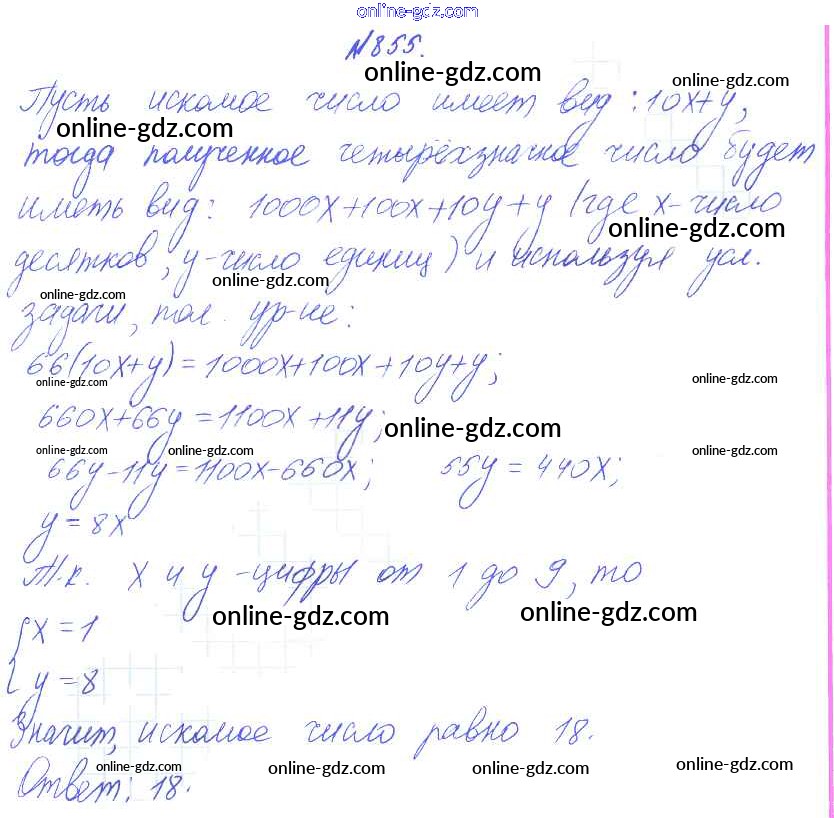 online-gdz.com
№855.
online-gdz.com
Пусть искомое число имеет вид: 10x+y,
online-gdz.com
тогда полученное четырёхзначное число будет
иметь вид: 1000x+100x+10y+y (где x-число
online-gdz.com
десятков, y-число единиц) и используя усл.
online-gdz.com online-gdz.com
задачи, пол. ур-ие:
66(10x+y)=1000x+100x+10y+y;
online-gdz.com online-gdz.com
660x+66y=1100x+11y;
online-gdz.com
online-gdz.com online-gdz.com online-gdz.com
66y-11y=1100x-660x; 55y=440x;
y=8x
Т.к. x и y -цифры от 1 до 9, то
online-gdz.com online-gdz.com
{x=1
y=8
Значит, искомое число равно 18.
online-gdz.com online-gdz.com online-gdz.com online-gdz.com
Ответ: 18.